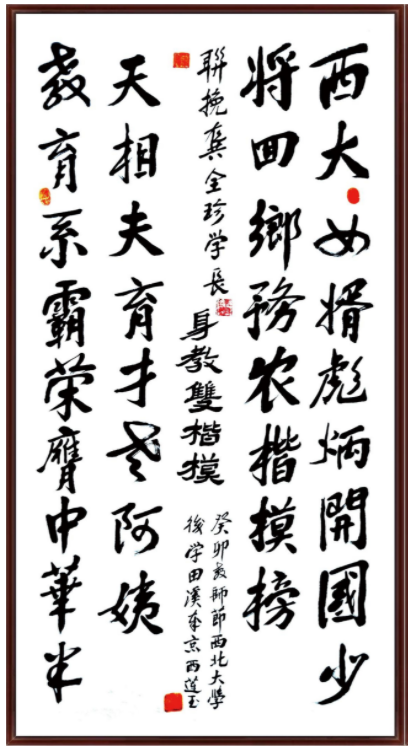 西大女婿彪炳開國少
将回鄉務农楷摸榜
教育系霸荣膺中華半
天相夫育才老阿姨
聯挽龚全珍学長
身教雙楷摸
癸卯教師節西北大學
後学田溪奉京西蓮玉